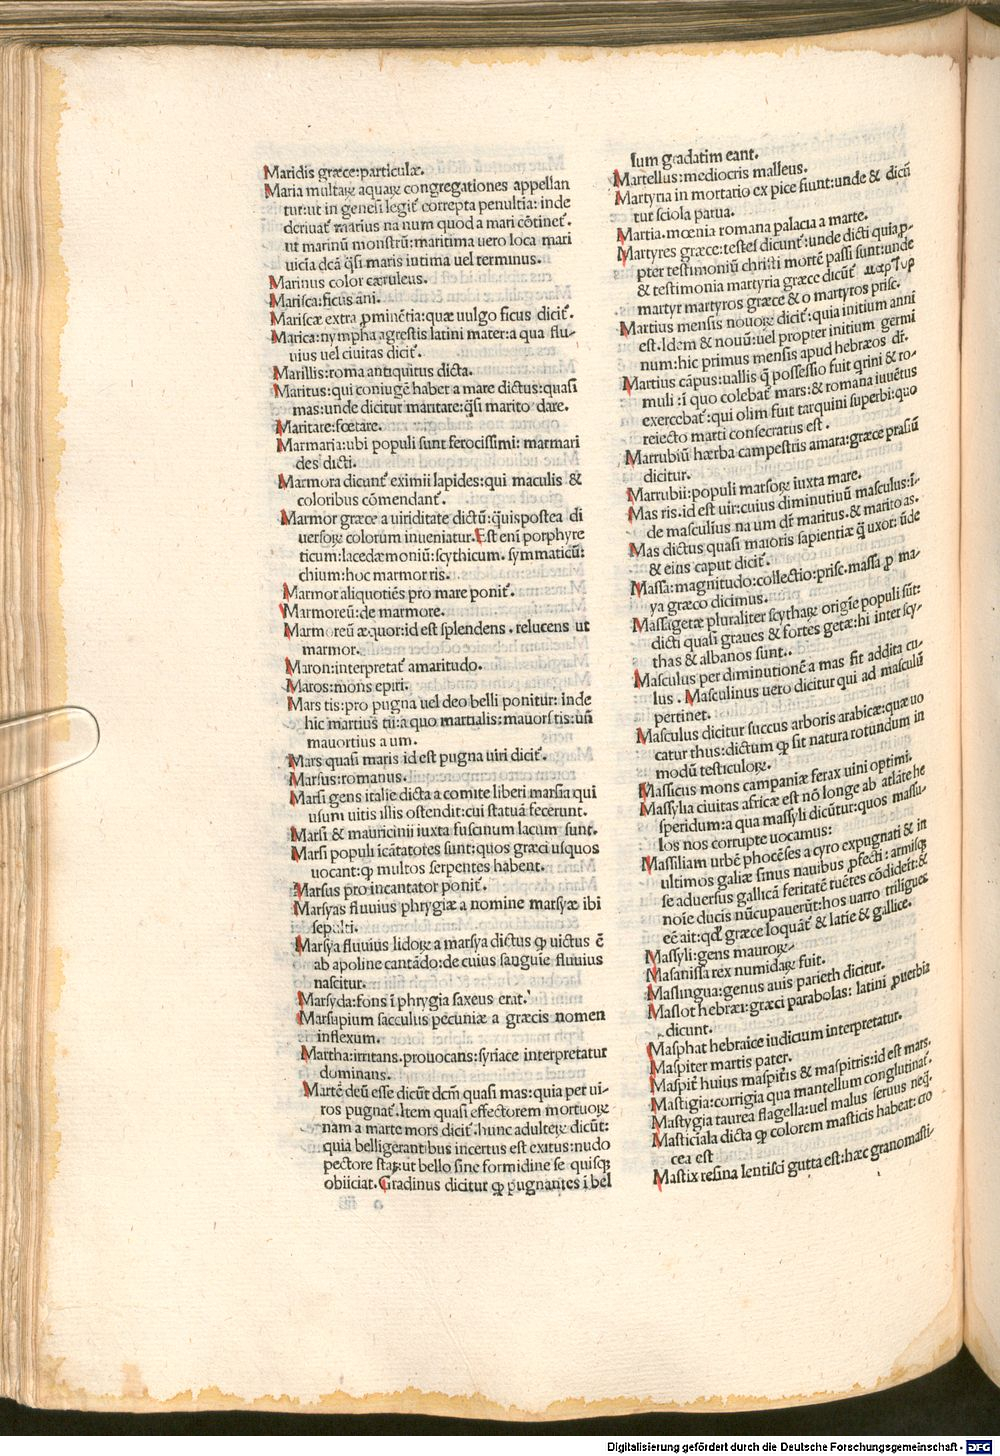 Maridis græce:particulæ.
Maria multaꝝ aquaꝝ congregationes appellan
tur:ut in genesi legit᷑ correpta penultia: inde
deriuat᷑ marius na num quod a mari cōtinet᷑.
ut marinū monstrū:maritima uero loca mari
uicia dcā q̄si maris intima uel terminus.
Marinus color cæruleus.
Marisca:ficus āni.
Mariscæ extra ꝓminētia:quæ uulgo ficus dicit᷑.
Marica:nympha agrestis latini mater:a qua flu-
uius uel ciuitas dicit᷑.
Marillis:roma antiquitus dicta.
Maritus:qui coniugē habet a mare dictus:quasi
mas:unde dicitur maritare:q̄si marito dare.
Maritare:fœtare.
Marmaria:ubi populi sunt ferocissimi: marmari
des dicti.
Marmora dicunt᷑ eximii lapides:qui maculis &
coloribus cōmendant᷑.
Marmor græce a uiriditate dictū:q̄uispostea di
uersoꝝ colorum inueniatur.Est eni porphyre
ticum:lacedæmoniū:scythicum. symmaticū:
chium:hoc marmorris.
Marmor aliquotiēs pro mare ponit᷑.
Marmoreū:de marmore.
Marmoreū æquor:id est splendens . relucens ut
marmor.
Maron:interpretat᷑ amaritudo.
Maros:mons epiri.
Mars tis:pro pugna uel deo belli ponitur: inde
hic martius tii:a quo martialis:mauors tis:uñ
mauortius a um.
Mars quasi maris id est pugna uiri dicit᷑.
Marsus:romanus.
Marsi gens italie dicta a comite liberi marsia qui
usum uitis illis ostendit:cui statuā fecerunt.
Marsi & mauricinii iuxta fuscinum lacum sunt.
Marsi populi icātatotes sunt:quos græci usquos
uocant:ꝙ multos serpentes habent.
Marsus pro incantator ponit᷑.
Marsyas fluuius phrygiæ a nomine marsyæ ibi
sepulti.
Marsya fluuius lidoꝝ a marsya dictus ꝙ uictus ē
ab apoline cantādo:de cuius sanguie fluuius
nascitur.
Marsyda:fons ī phrygia saxeus erat.
Marsupium sacculus pecuniæ a græcis nomen
inflexum.
Martha:irritans.prouocans:syriace interpretatur
dominans.
Martē deū esse dicūt dcm̄ quasi mas:quia per ui-
ros pugnat᷑.Item quasi effectorem mortuoꝝ
nam a marte mors dicit᷑.hunc adulteꝝ dicūt:
quia belligerantibus incertus est exitus:nudo
pectore stat:ut bello sine formidine se quisq;
obiiciat.Gradinus dicitur ꝙ pugnantes i bel
lum gradatim eant.
Martellus:mediocris malleus.
Martyria in mortario ex pice fiunt:unde & dicū
tur sciola parua.
Martia.mœnia romana palacia a marte.
Martyres græce:testes dicunt᷑:unde dicti quia ꝓ-
pter testimoniū christi mortē passi sunt:unde
& testimonia martyria græce dicūt᷑
martyr martyros græce & o martyros prisc.
Martius mensis nouoꝝ dicit᷑:quia initium anni
est.Idem & nouū:uel propter initium germi
num:hic primus mensis apud hebræos dr̄.
Martius cāpus:uallis q̄ possessio fuit qrini & ro-
muli :ī quo colebat᷑ mars:& romana iuuētus
exercebat᷑:qui olim fuit tarquini superbi:quo
reiecto marti consecratus est .
Marrubiū hærba campestris amara:græce prasiū
dicitur.
Marrubii:populi marsoꝝ iuxta mare.
Mas ris.id est uir:cuius diminutiuū masculus:ī-
de masculius na um dr̄ maritus.& marito as.
Mas dictus quasi maioris sapientiæ q̄ uxor: ūde
& eius caput dicit᷑.
Massa:magnitudo:collectio:prisc.massa ꝓ ma-
ya græco dicimus.
Massagetæ pluraliter scythaꝝ origīe populi sūt:
dicti quasi graues & fortes getæ:hi inter scy-
thas & albanos sunt..
Masculus per diminutionē a mas fit addita cu-
lus . Masculinus uero dicitur qui ad masculū
pertinet.
Masculus dicitur succus arboris arabicæ:quæ uo
catur thus:dictum ꝙ sit natura rotundum in
modū testiculoꝝ.
Massicus mons campaniæ ferax uini optimi.
Massylia ciuitas africæ est nō longe ab atlāte he
speridum:a qua massyli dicūtur:quos massi-
los nos corrupte uocamus:
Massiliam urbē phocēses a cyro expugnati & in
ultimos galiæ sinus nauibus ꝓfecti: armisq;
se aduersus gallicā feritatē tuētes cōdiderūt:&
noīe ducis nūcupauerūt:hos uarro trilīgues
eē ait:qd̓ græce loquāt᷑ & latie & gallice.
Massyli:gens mauroꝝ
Masanissa rex numidaꝝ fuit.
Maslingua:genus auis parieth dicitur.
Maslot hebræi:græci parabolas: latini ꝓuerbia
dicunt.
Masphat hebraice iudicium interpretatur.
Maspiter martis pater.
Maspit᷑ huius maspit᷑is & maspitris:id est mars.
Mastigia:corrigia qua mantellum conglutinat᷑.
Mastygia taurea flagella:uel malus seruus neq̄.
Masticiala dicta ꝙ colorem masticis habeat: cro
cea est
Mastix resina lentisci gutta est:hæc granomasti-
Digitalisierung gefördert durch die Deutsche Forschungsgemeinschaft - DFG